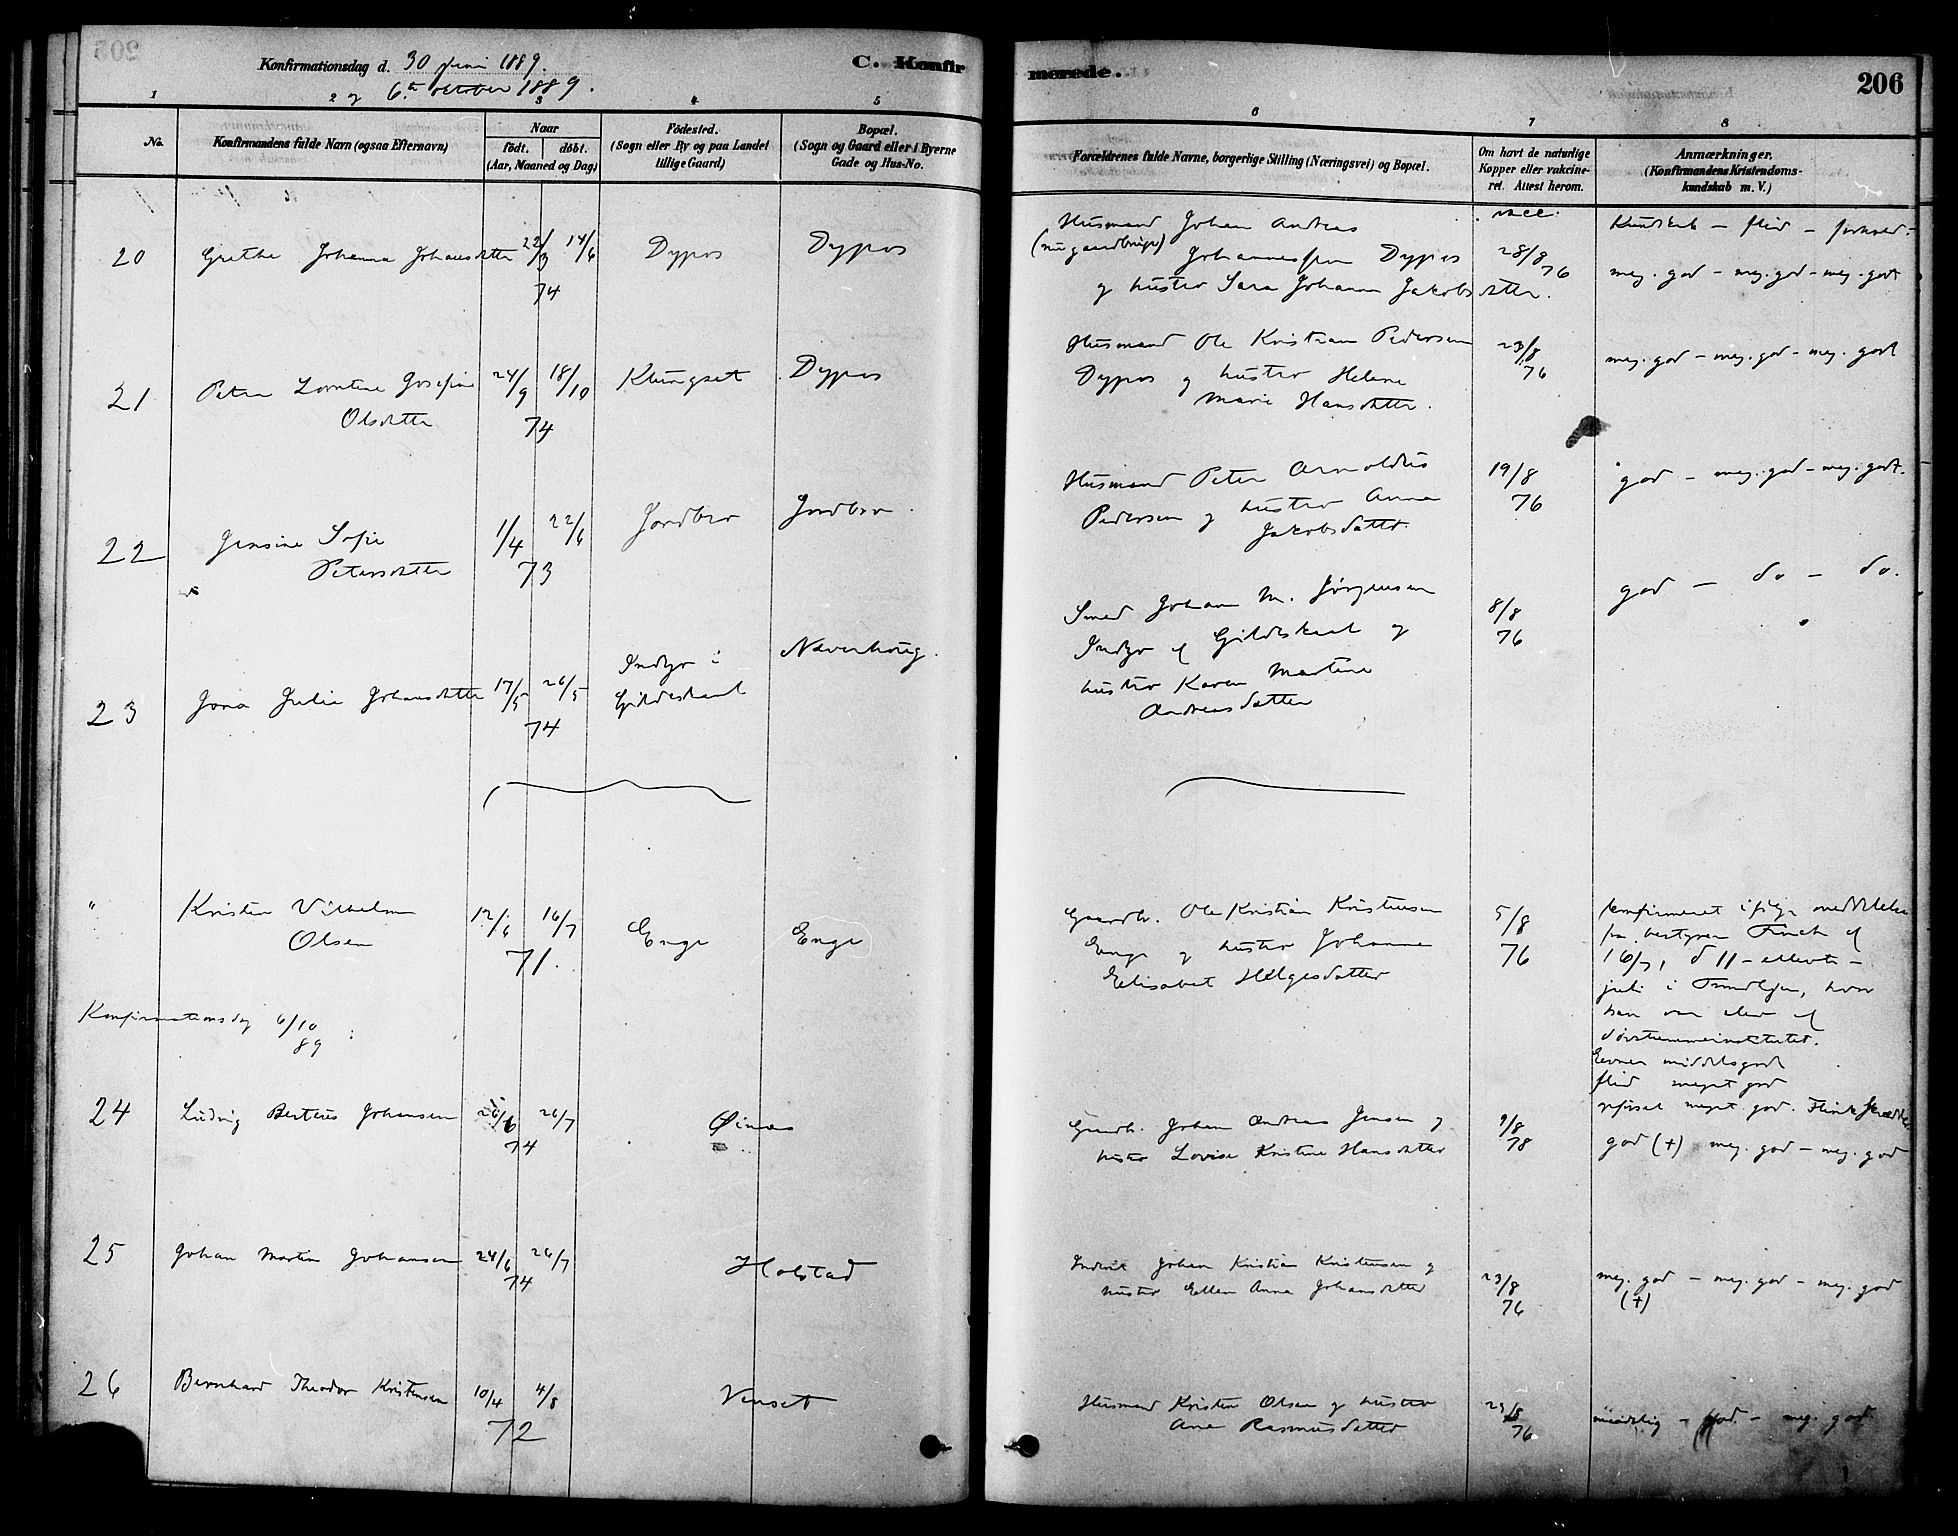 Konfirmationsdag d. 30 Juni 1889.
og 6te oktober 1889.
C. Konfir
merede.
206
1 2 3 4 5
6 7 8
No.
Konfirmandens fulde Navn (ogsaa Efternavn)
Naar
födt. döbt.
(Aar, Maaned og Dag)
Födested.
(Sogn eller By og paa Landet
tillige Gaard)
Bopæl.
(Sogn og Gaard eller i Byerne
Gade og Hus-No.
Forældrenes fulde Navne, borgerlige Stilling (Næringsvei) og Bopæl.
Om havt de naturlige
Kopper eller vakcine-
ret. Attest herom.
Anmærkninger.
(Konfirmandens Kristendoms-
kundskab m. V.)
vacc. Kundskab – flid – forhold
20 Grethe Johanna Johansdatter 22/3 14/6 74 Dypos Dypos
Husmand Johan Andreas
(nu gaardbruger) Johannessen Dypos
og hustru Sara Johanna Jakobsdatter.
28/8 76
meg. god – meg. god – meg. godt
21 Petra Lorntine Josefine
Olsdatter
24/9 18/10 74 Klungset Dypos
Husmand Ole Kristian Pedersen
Dypos og hustru Helene
Marie Hansdatter.
23/8 76
meg. god – meg. god – meg. godt
22 Jensine Sofie
Petersdatter
1/4 22/6 73 Jordbro Jordbro.
Husmand Peter Arnoldus
Pedersen og hustru Anna
Jakobsdatter.
19/8 76
god – meg. god – meg. godt.
23 Jona Julie Johansdatter 17/5 26/5 74
Indyr i
Gildeskaal
Naverhoug.
Smed Johan M. Jørgensen
Indyr af Gildeskaal og
hustru Karen Martine
Andreasdatter
8/8 76
god – do – do.
" Kristen Vilhelm
Olsen
12/6 16/7 71. Enge Enge
Gaardbr. Ole Kristian Kristensen
Enge og hustru Johanna
Elisabet Helgesdatter
5/8 76
konfirmeret ifølge meddelelse
fra bestyrer Finch af
16/7, d 11 – ellevte –
juli i Trondhjem, hvor
han var elev af
døvstummeinstitutet.
Evner middelsgode
flid meget god
opførsel meget god. Flink skrædder.
Konfirmationsdag 6/10 89 :
24 Ludvig Berteus Johansen 26/6 26/7 74 Øinæs
Gaardb. Johan Andreas Jensen og
hustru Lovise Kristine Hansdatter
9/8 78
god (+) meg. god – meg. god
25 Johan Martin Johansen 24/6 26/7 74 Holstad
Inderst Johan Kristian Kristensen og
hustru Ellen Anna Johansdatter
23/8 76
meg. god – meg. god – meg. god
(+)
26 Bernhard Theodor Kristensen 10/4 4/8 72 Venset
Husmand Kristen Olsen og hustru
Ane Rasmusdatter
23/8 76
maadelig – god – meg. god